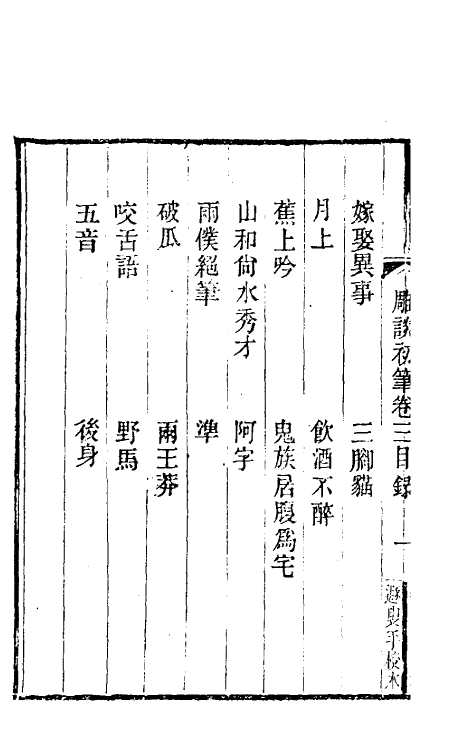 雕談初筆卷三目錄 一 遯叟手校本
嫁娶異事 三腳貓
月上 飲酒不醉
蕉上吟 鬼族居腹爲宅
山和尙水秀才 阿字
雨僕絕筆 準
破瓜 兩王莽
咬舌語 野馬
五音 後身